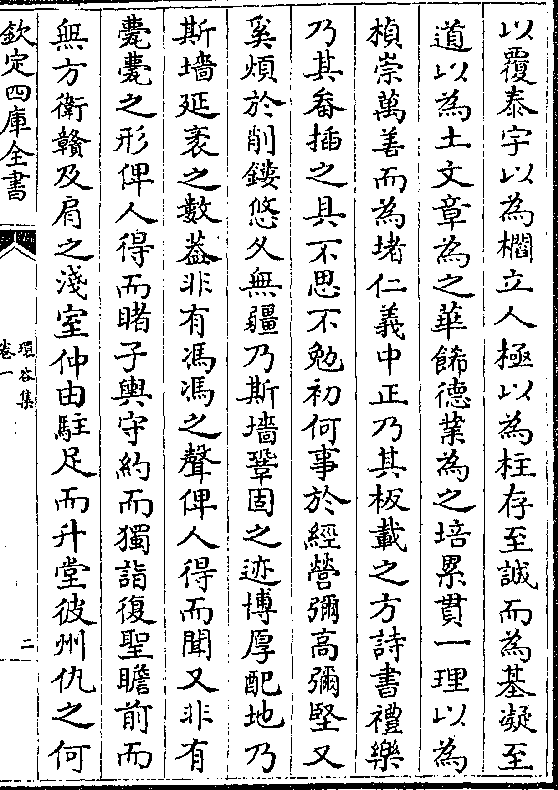 以覆泰宇以為櫩立人極以為柱存至誠而為基凝至
道以為土文章為之華餙德業為之培累貫一理以為
楨崇萬善而為堵仁義中正乃其板載之方詩書禮樂
乃其畚插之具不思不勉初何事於經營彌高彌堅又
奚煩於削鏤悠久無疆乃斯墻鞏固之迹博厚配地乃
斯墻延袤之數葢非有馮馮之聲俾人得而聞又非有
薨薨之形俾人得而睹子輿守約而獨詣復聖瞻前而
無方衛贛及肩之淺室仲由駐足而升堂彼州仇之何
欽定四庫全書
環谷集
卷一
二